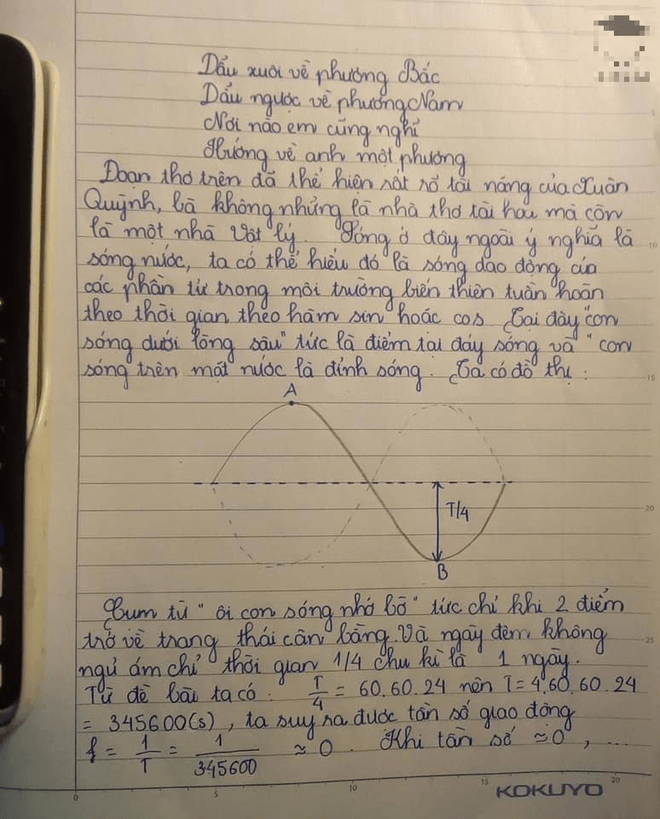 Dẫu xuôi về phương Bắc
Dẫu ngược về phương Nam
Nơi nào em cũng nghĩ
Hướng về anh một phương
Đoạn thơ trên đã thể hiện rất rõ tài năng của Xuân
Quỳnh, bà không những là nhà thơ tài hoa mà còn
là một nhà Vật lý. Sóng ở đây ngoài ý nghĩa là
sóng nước, ta có thể hiểu đó là sóng dao động của
các phần tử trong môi trường biến thiên tuần hoàn
theo thời gian theo hàm sin hoặc cos. Tại đây "con
sóng dưới lòng sâu" tức là điểm tại đáy sóng và "con
sóng trên mặt nước là đỉnh sóng. Ta có đồ thị:
A
T/4
B
Cụm từ "ôi con sóng nhớ bờ" tức chỉ khi 2 điểm
trở về trạng thái cân bằng. Và ngày đêm không
ngủ ám chỉ thời gian 1/4 chu kì là 1 ngày.
Từ đề bài ta có: T/4 = 60.60.24 nên T = 4.60.60.24
= 345600(s), ta suy ra được tần số giao động
f = 1/T = 1/345600 ≈ 0. Khi tần số ≈ 0, ...
KOKUYO